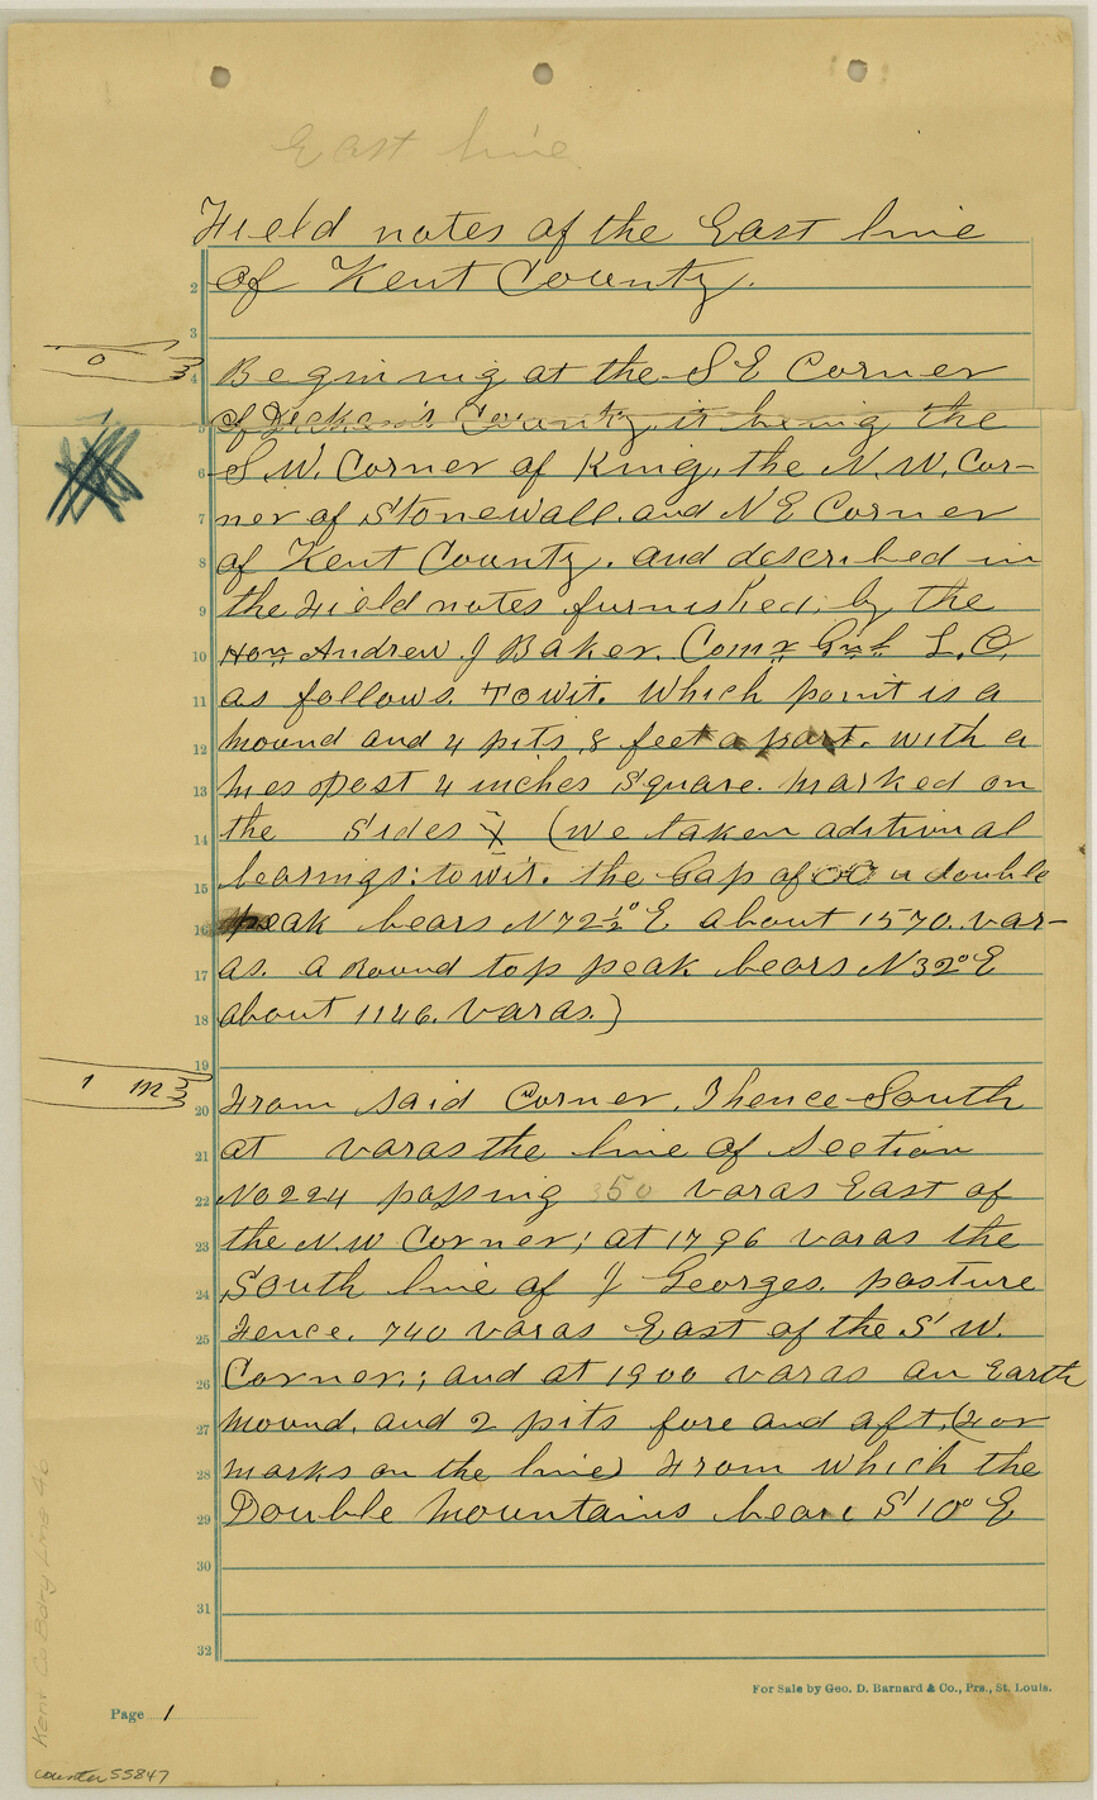 East line
Field notes of the East line
2 of Kent County.
3
0
4 Begining at the S E Corner
5 of Dickens County it being the
6 S.W. Corner of King, the N.W. Cor-
7 ner of Stonewall. and N E Corner
8 of Kent County. and described in
9 the Field notes furnished by the
10 Hon Andrew J Baker. Comr Gnl L.O.
11 as follows. Towit. Which point is a
12 mound and 4 pits 8 feet apart. with a
13 mes post 4 inches square. marked on
14 the sides X (we taken aditional
15 bearings: towit. the Gap of a double
16 peak bears N 72 1/2° E about 1570. var-
17 as. a Round top peak bears N 32° E
18 about 1146. varas.)
19
1 m
20 From said Corner. Thence South
21 at varas the line of Section
22 No 224 passing 350 varas East of
23 the N.W Corner; at 1796 varas the
24 South line of J Georges. pasture
25 Fence. 740 varas East of the S W.
26 Corner.; and at 1900 varas an Earth
27 mound. and 2 pits fore and aft. (For
28 marks on the line) From which the
29 Double Mountains bears S 10° E
30
31
32
For Sale by Geo. D. Barnard & Co., Prs., St. Louis.
Page 1
Kent Co Bdry Line 46
counter 55847